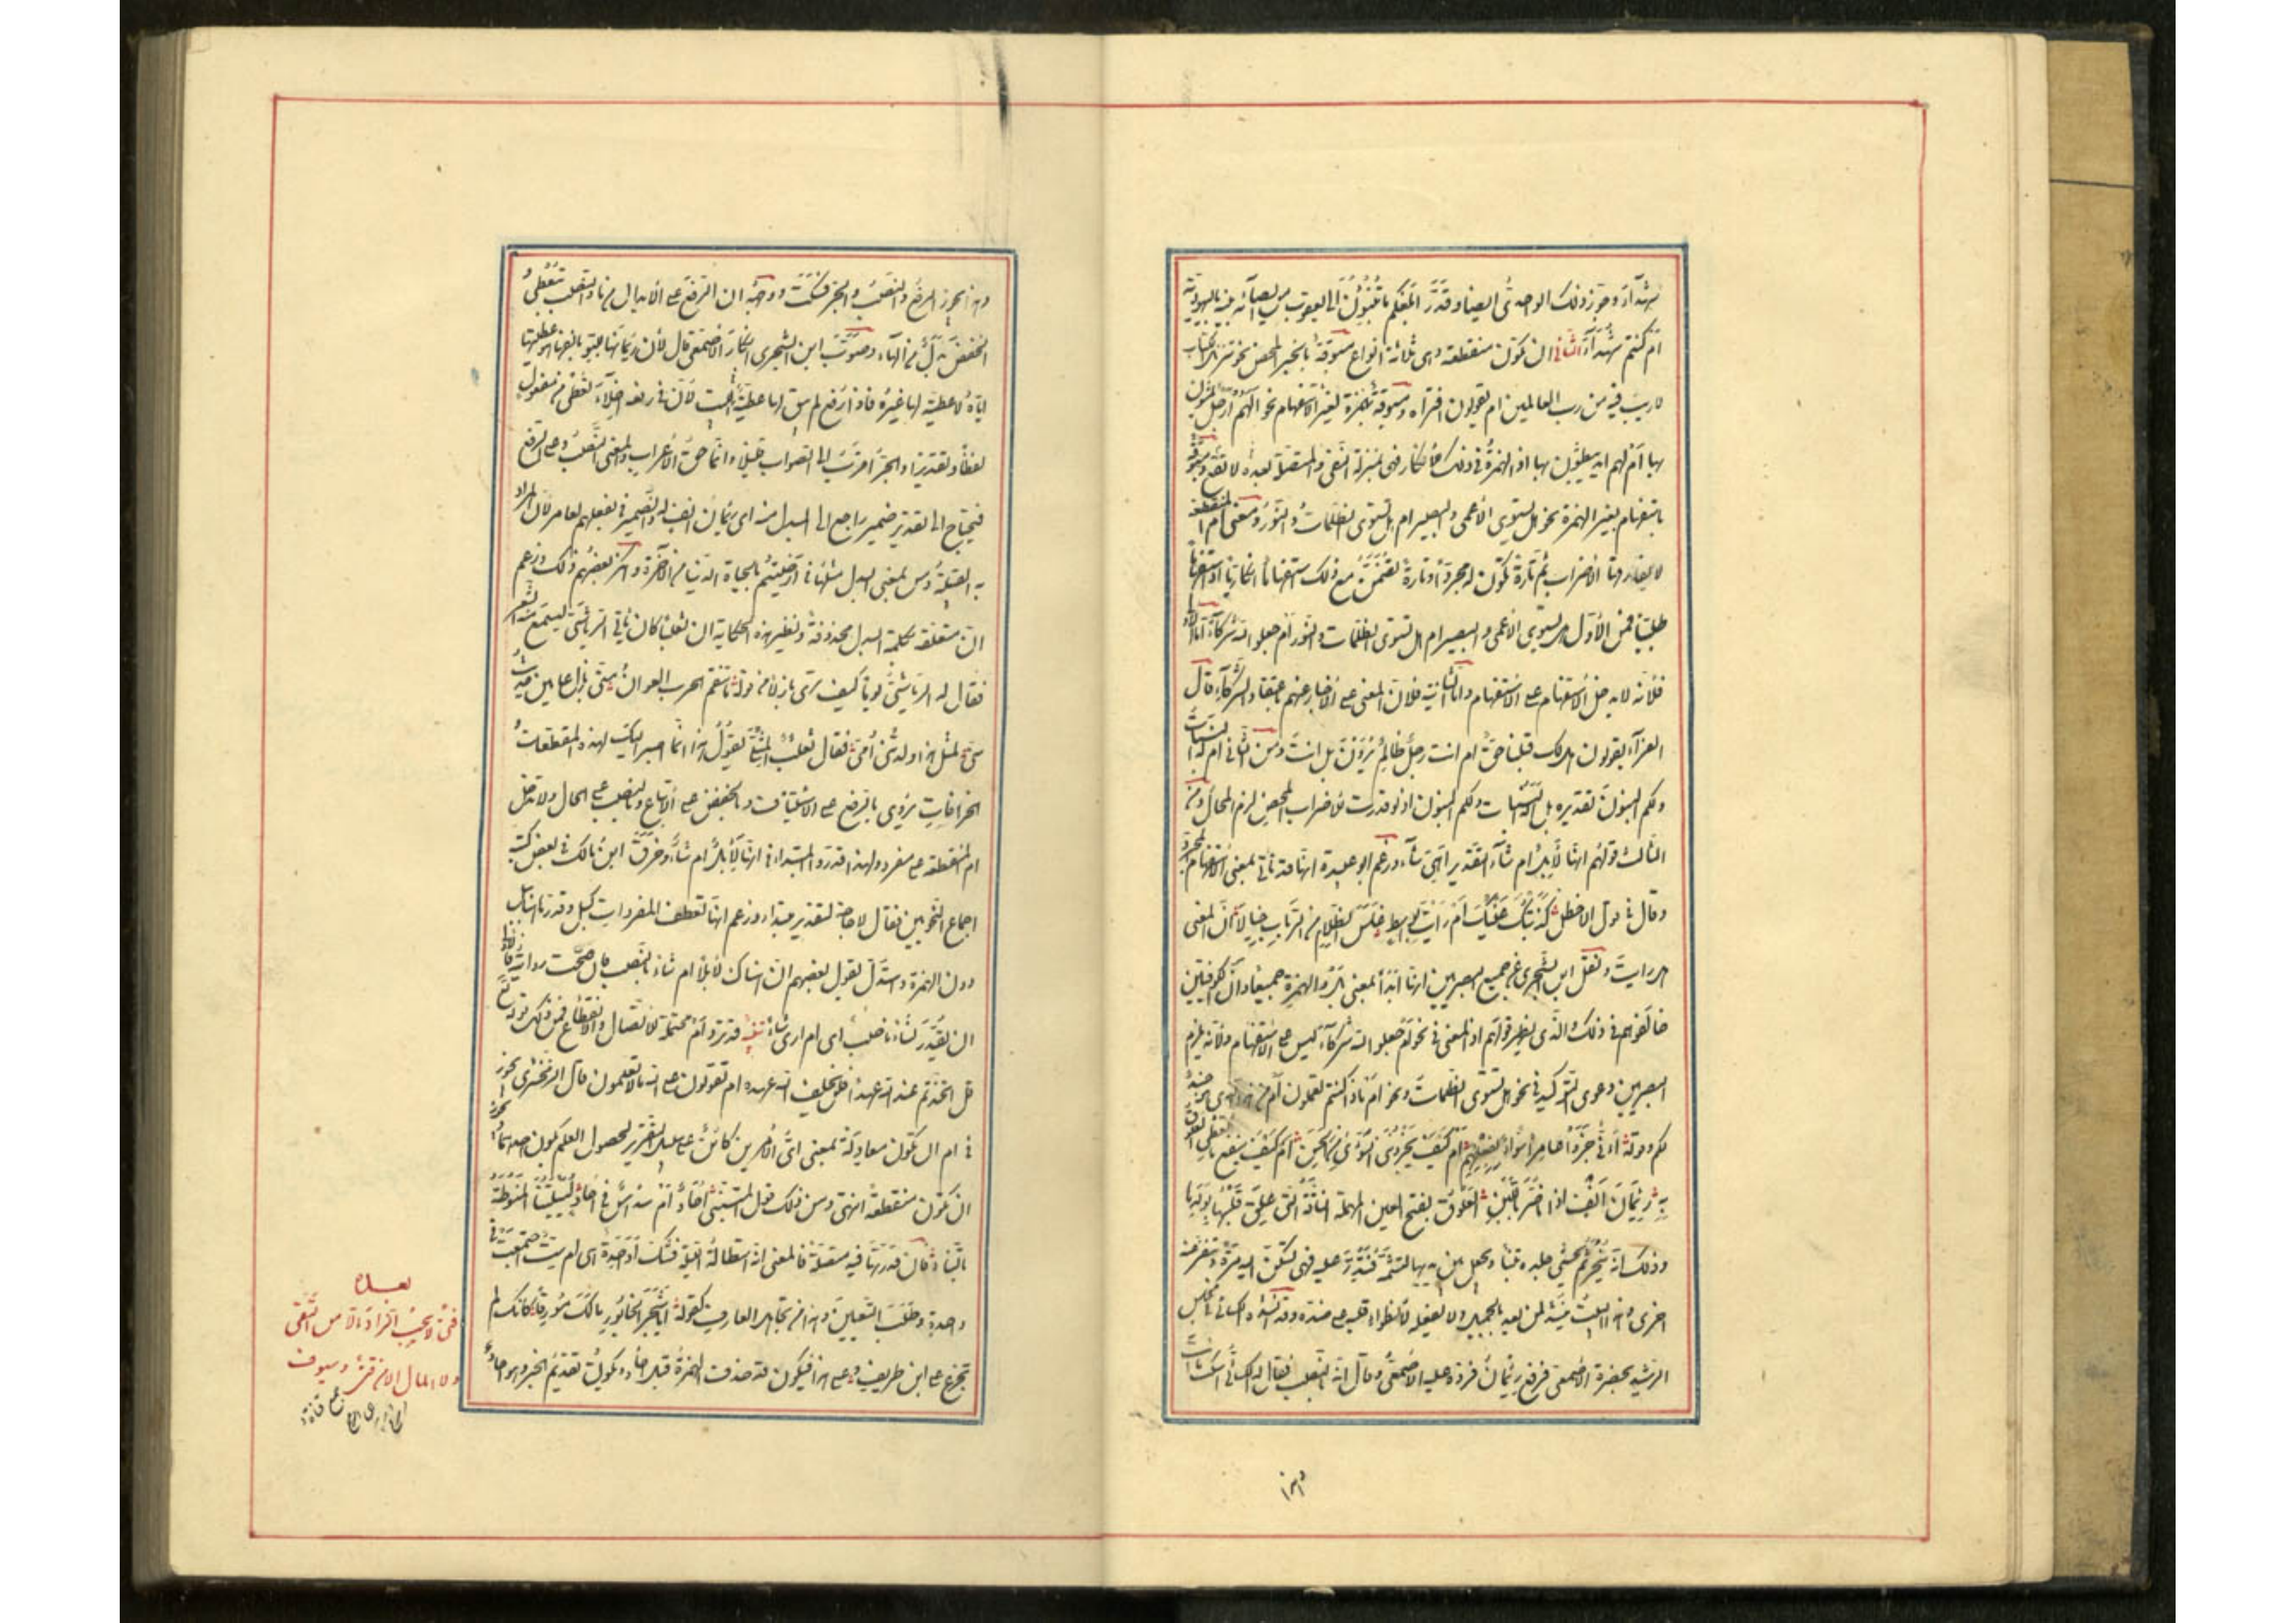 شهدآء وجوز ذلك الواحدى ايضا وقدّر ابلغكم ما تنسبون الى يعقوب من ايصآئه بنيه باليهودية
ام كنتم شهدآء الثانى ان تكون منقطعة وهى ثلاثة انواع مسبوقة بالخبر المحض نحو تنزيل الكتاب
لا ريب فيه من رب العالمين ام يقولون افتراه ومسبوقة بهمزة لغير الاستفهام نحو الهم ارجل يمشون
بها ام لهم ايد يبطشون بها اذ الهمزة فى ذلك للانكار فهى بمنزلة النفى والمتصلة لا تقع بعده ومسبوقة
باستفهام بغير الهمزة نحو هل يستوى الاعمى والبصير ام هل تستوى الظلمات والنور ومعنى ام المنقطعة
لا يفارقها الاضراب ثم تارة تكون له مجردا وتارة تتضمن مع ذلك استفهاما انكاريا او استفهاما
طلبيا فمن الاول هل يستوى الاعمى والبصير ام هل تستوى الظلمات والنور ام جعلوا لله شركآء اما الاولى
فلانه لا يدخل الاستفهام على الاستفهام واما الثانية فلان المعنى على الاخبار عنهم باعتقاد الشركآء قال
الفرآء يقولون هل لك قبلنا حق ام انت رجل ظالم يريدون بل انت ومن الثانى ام له البنات
ولكم البنون تقديره بل أله البنات ولكم البنون اذ لو قدرت للاضراب المحض لزم المحال ومن
الثالث قولهم انها لابل ام شآء التقدير بل اهى شآء وزعم ابو عبيدة انها قد تاتى بمعنى الاستفهام المجرد
وقال فى قول الاخطل كذبتك عينك ام رأيت بواسط غلس الظلام من الرباب خيالا ان المعنى
هل رايت ونقل ابن الشجرى عن جميع البصريين انها ابدا بمعنى بل والهمزة جميعا وان الكوفيين
خالفوهم فى ذلك والذى يظهر قولهم اذ المعنى فى نحو ام جعلوا لله شركآء ليس على الاستفهام ولانه يلزم
البصريين دعوى التوكيد فى نحو ام هل تستوى الظلمات ونحو ام ماذا كنتم تعملون ام من هذا الذى هو جند
لكم وقوله انى جزوا عامرا سوأى بفعلهم ام كيف يجزوننى السوأى من الحسن ام كيف ينفع ما تعطى العلوق
به رئمان انف اذا ما ضن باللبن العلوق بفتح العين المهملة الناقة التى علق قلبها بولدها
وذلك انه ينحر ثم يحشى جلده تبنا ويجعل بين يديها لتشمه فتدر عليه فهى تسكن اليه مرة وتنفر عنه
اخرى وهذا البيت ينشد لمن يعد بالجميل ولا يفعله لانطوآء قلبه على ضده وقد انشده الكسائى فى مجلس
الرشيد بحضرة الاصمعى فرفع رئمان فرده عليه الاصمعى وقال انه بالنصب فقال له الكسائى اسكت ما انت
وهذا
وهذا يجوز الرفع والنصب والجر فسكت ووجهه ان الرفع على الابدال من ما والنصب بتعطى
والخفض بدل من الهآء وصوّب ابن الشجرى انكار الاصمعى قال لان رئمانها للبو بانفها هو عطيتها
اياه لا عطية لها غيره فاذا رفع لم يبق لها عطية فى البيت لان فى رفعه اخلآء تعطى من مفعوله
لفظا وتقديرا والجر اقرب الى الصواب قليلا وانما حق الاعراب والمعنى النصب وعلى الرفع
فيحتاج الى تقدير ضمير راجع الى المبدل منه اى رئمان انف له والضمير فى بفعلهم لعامر لان المراد
به القبيلة ومن بمعنى البدل مثلها فى ارضيتم بالحياة الدنيا من الآخرة وانكر بعضهم ذلك وزعم
ان من متعلقة بكلمة البدل محذوفة ونظير هذه الحكاية ان ثعلبا كان ياتى الرياشى ليسمع منه الشعر
فقال له الرياشى يوما كيف تروى بازلا من قوله ما تنقم الحرب العوان منى بازل عامين حديث
سنى لمثل هذا ولدتنى امى فقال ثعلب المثلى تقول هذا انما اصير اليك لهذه المقطعات
والخرافات يروى بالرفع على الاستئناف وبالخفض على الاتباع وبالنصب على الحال ولا تدخل
ام المنقطعة على مفرد ولهذا قدروا المبتدا فى انها لابل ام شآء وخرق ابن مالك فى بعض كتبه
اجماع النحويين فقال لا حاجة لتقدير مبتدا وزعم انها تعطف المفردات كبل وقدرها هنا ببل
دون الهمزة واستدل بقول بعضهم ان هناك لابلا ام شآء بالنصب فان صحت روايته فالاولى
ان يقدر لشآء ناصب اى ام ارى شآء تنبيه قد ترد ام محتملة للاتصال والانقطاع فمن ذلك قوله تع
قل اتخذتم عند الله عهدا فلن يخلف الله عهده ام تقولون على الله ما لا تعلمون قال الزمخشرى يجوز
فى ام ان تكون معادلة بمعنى اى الامرين كائن على سبيل التقرير لحصول العلم بكون احدهما ويجوز
ان تكون منقطعة انتهى ومن ذلك قول المتنبى احاد ام سداس فى احاد لييلتنا المنوطة
بالتناد فان قدرتها فيه متصلة فالمعنى انه استطال الليلة فشك أواحدة هى ام ست اجتمعت فى
واحدة فطلب التعيين وهذا من تجاهل العارف كقوله ايا شجر الخابور مالك مورقا كانك لم
تجزع على ابن طريف وعلى هذا فيكون قد حذف الهمزة قبل احاد ويكون تقديم الخبر وهو احاد
بعده
فتى لا يحب الزاد الا من التقى
ولا المال الا من قنى وسيوف